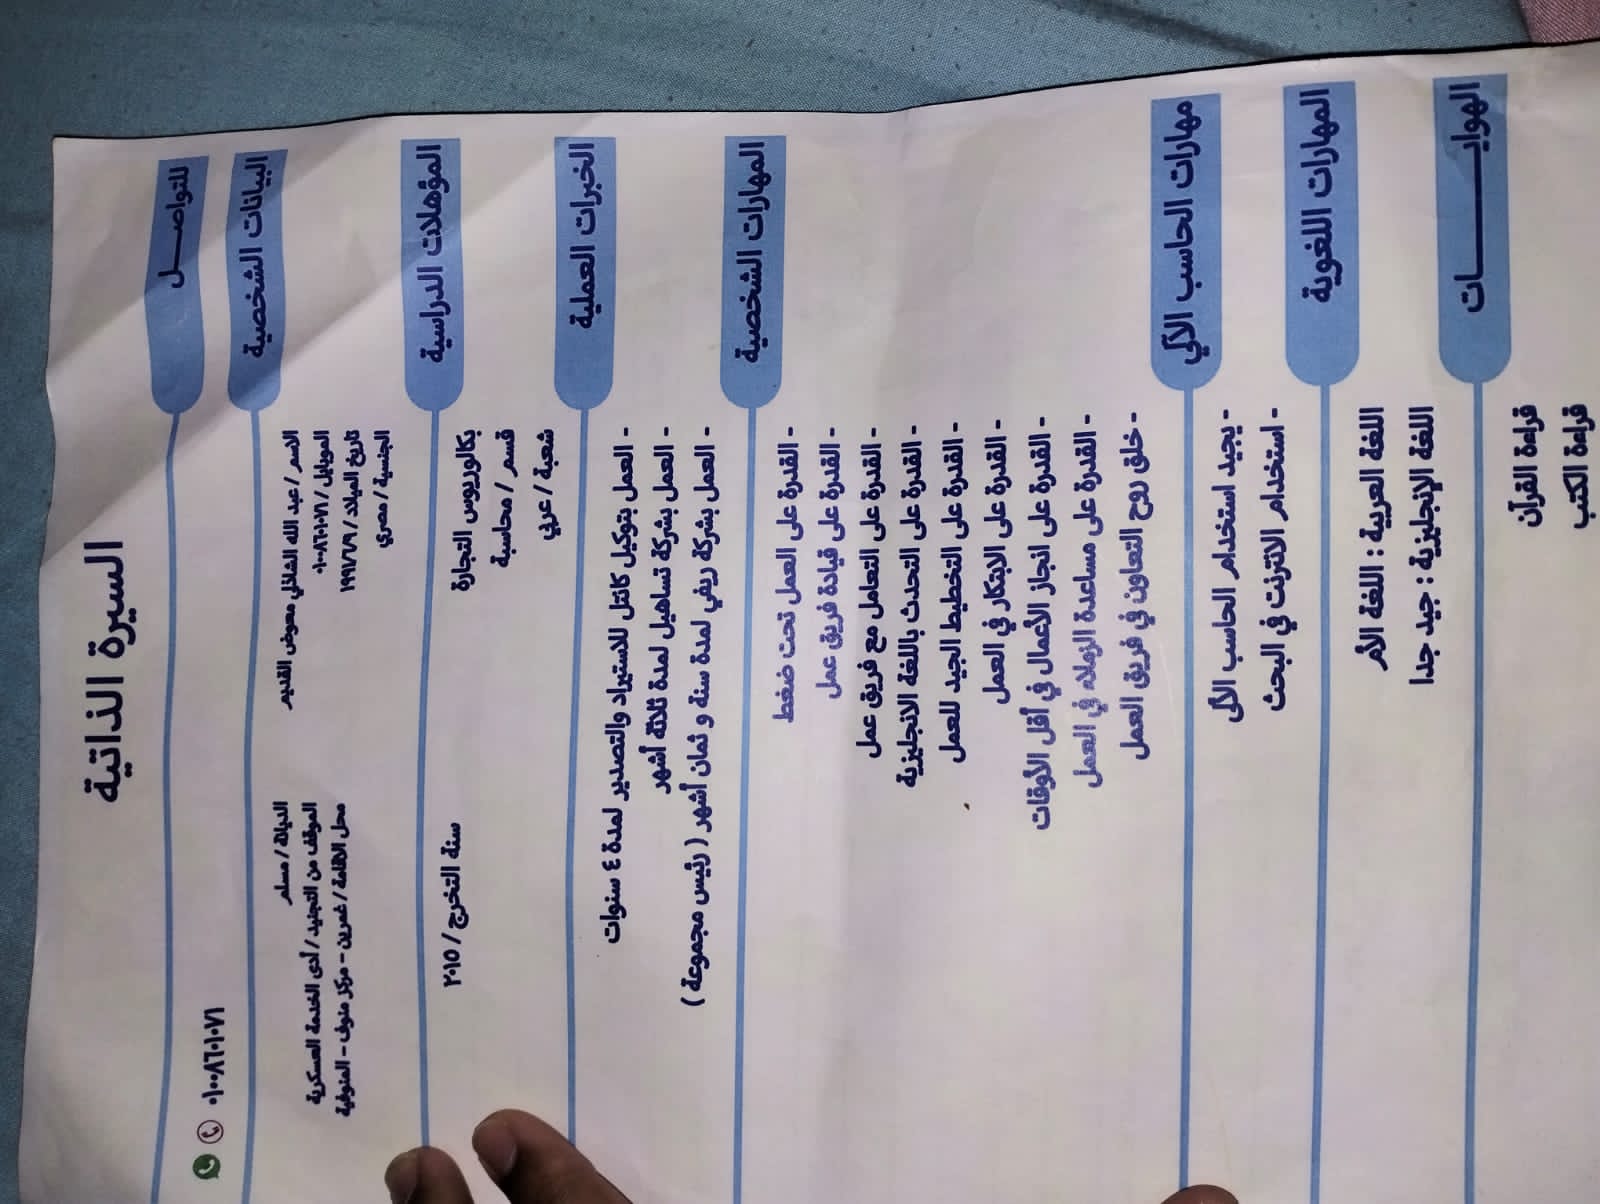 السيرة الذاتية
للتواصـــــل
٠١٠٠٨٦٠١٠٧١
البيانات الشخصية
الاسم / عبد الله الشاذلي معوض القديم
الديانة / مسلم
الموبايل / ٠١٠٠٨٦٠١٠٧١
الموقف من التجنيد / أدى الخدمة العسكرية
تاريخ الميلاد / ١٩٩١/٦/٩
محل الاقامة / غمرين - مركز منوف - المنوفية
الجنسية / مصري
المؤهلات الدراسية
بكالوريوس التجارة
سنة التخرج / ٢٠١٥
قسم / محاسبة
شعبة / عربي
الخبرات العملية
- العمل بتوكيل كاتل للاستيراد والتصدير لمدة ٤ سنوات
- العمل بشركة تساهيل لمدة ثلاثة أشهر
- العمل بشركة ريفي لمدة سنة و ثمان أشهر ( رئيس مجموعة )
المهارات الشخصية
- القدرة على العمل تحت ضغط
- القدرة على قيادة فريق عمل
- القدرة على التعامل مع فريق عمل
- القدرة على التحدث باللغة الانجليزية
- القدرة على التخطيط الجيد للعمل
- القدرة على الابتكار في العمل
- القدرة على انجاز الأعمال في أقل الأوقات
- القدرة على مساعدة الزملاء في العمل
- خلق روح التعاون في فريق العمل
مهارات الحاسب الآلي
- يجيد استخدام الحاسب الآلى
- استخدام الانترنت في البحث
المهارات اللغوية
اللغة العربية : اللغة الأم
اللغة الإنجليزية : جيد جدا
الهوايـــــــــات
قراءة القرآن
قراءة الكتب